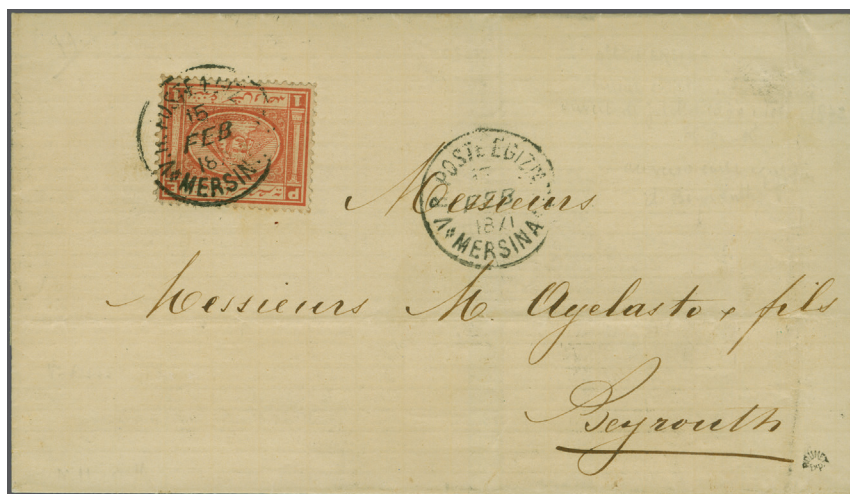 15
FEB
18
MERSIN
V. R. POSTE EGIZIANE
FEB
1871
MERSINA
Messieurs
Messieurs M. Agelasto & fils
Beyrouth